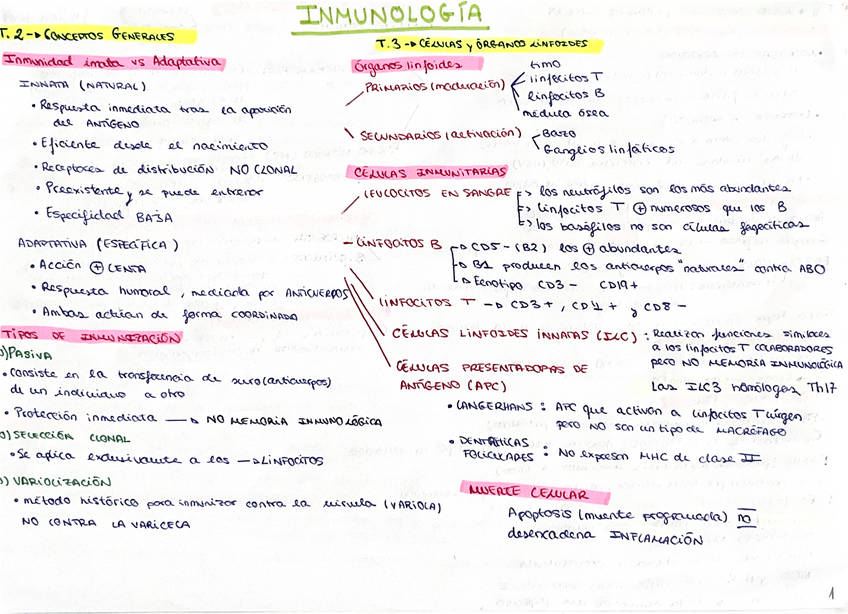 INMUNOLOGÍA
T.2 → CONCEPTOS GENERALES
Inmunidad innata vs Adaptativa
INNATA (NATURAL)
• Respuesta inmediata tras la aparición
del ANTÍGENO
• Eficiente desde el nacimiento
• Receptores de distribución NO CLONAL
• Preexistente y se puede entrenar
• Especificidad BAJA
ADAPTATIVA (ESPECÍFICA)
• Acción ⊕ LENTA
• Respuesta humoral, mediada por ANTICUERPOS
• Ambas actúan de forma COORDINADA
TIPOS DE INMUNIZACIÓN
)PASIVA
• Consiste en la transferencia de suero (anticuerpos)
de un individuo a otro
• Protección inmediata → NO MEMORIA INMUNOLÓGICA
) SELECCIÓN CLONAL
• Se aplica exclusivamente a los → LINFOCITOS
) VARIOLIZACIÓN
• método histórico para inmunizar contra la viruela (VARIOLA)
NO CONTRA LA VARICELA
T.3 → CÉLULAS y ÓRGANOS LINFOIDES
Órganos linfoides
PRIMARIOS (maduración)
timo
linfocitos T
linfocitos B
médula ósea
SECUNDARIOS (activación)
Bazo
Ganglios linfáticos
CÉLULAS INMUNITARIAS
LEUCOCITOS EN SANGRE
→ los neutrófilos son los más abundantes
→ linfocitos T ⊕ numerosos que los B
→ los basófilos no son células fagocíticas
LINFOCITOS B
→ CD5- (B2) los ⊕ abundantes
→ B1 producen los anticuerpos "naturales" contra ABO
→ Fenotipo CD3- CD19+
LINFOCITOS T → CD3+, CD4+ y CD8-
CÉLULAS LINFOIDES INNATAS (ILC) : Realizan funciones similares
a los linfocitos T COLABORADORES
pero NO MEMORIA INMUNOLÓGICA
Las ILC3 homólogas Th17
CÉLULAS PRESENTADORAS DE
ANTÍGENO (APC)
• LANGERHANS : APC que activan a linfocitos T virgen
pero NO son un tipo de MACRÓFAGO
• DENDRÍTICAS
FOLICULARES : NO expresan MHC de clase II
MUERTE CELULAR
Apoptosis (muerte programada) no
desencadena INFLAMACIÓN
1